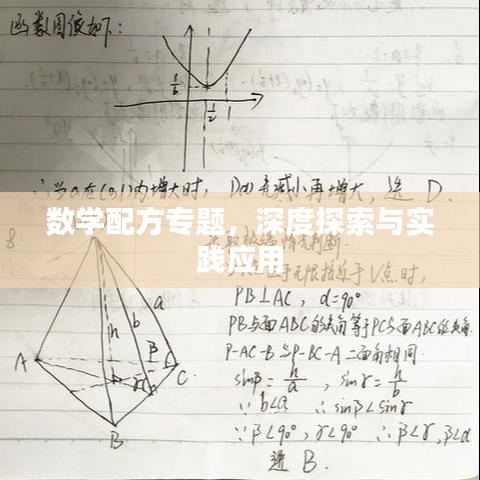 函数图像如下：
1/6
1/2
1
∴当a在(0,1)内增大时，D(X)先减小再增大，选 D.
数学配方专题，深度探索与实
践应用
8.
a
h
b
A
B
C
B
点时，
PB⊥AC，α=90°
PB与面ABC的夹角等于PC与面ABC的夹角.
P-AC-B与P-BC-A二面角相同.
sinβ=h/a，sinγ=h/b
∵b<a ∴sinβ<sinγ
∵β<90°，γ<90° ∴β<γ，β<α
选 B.